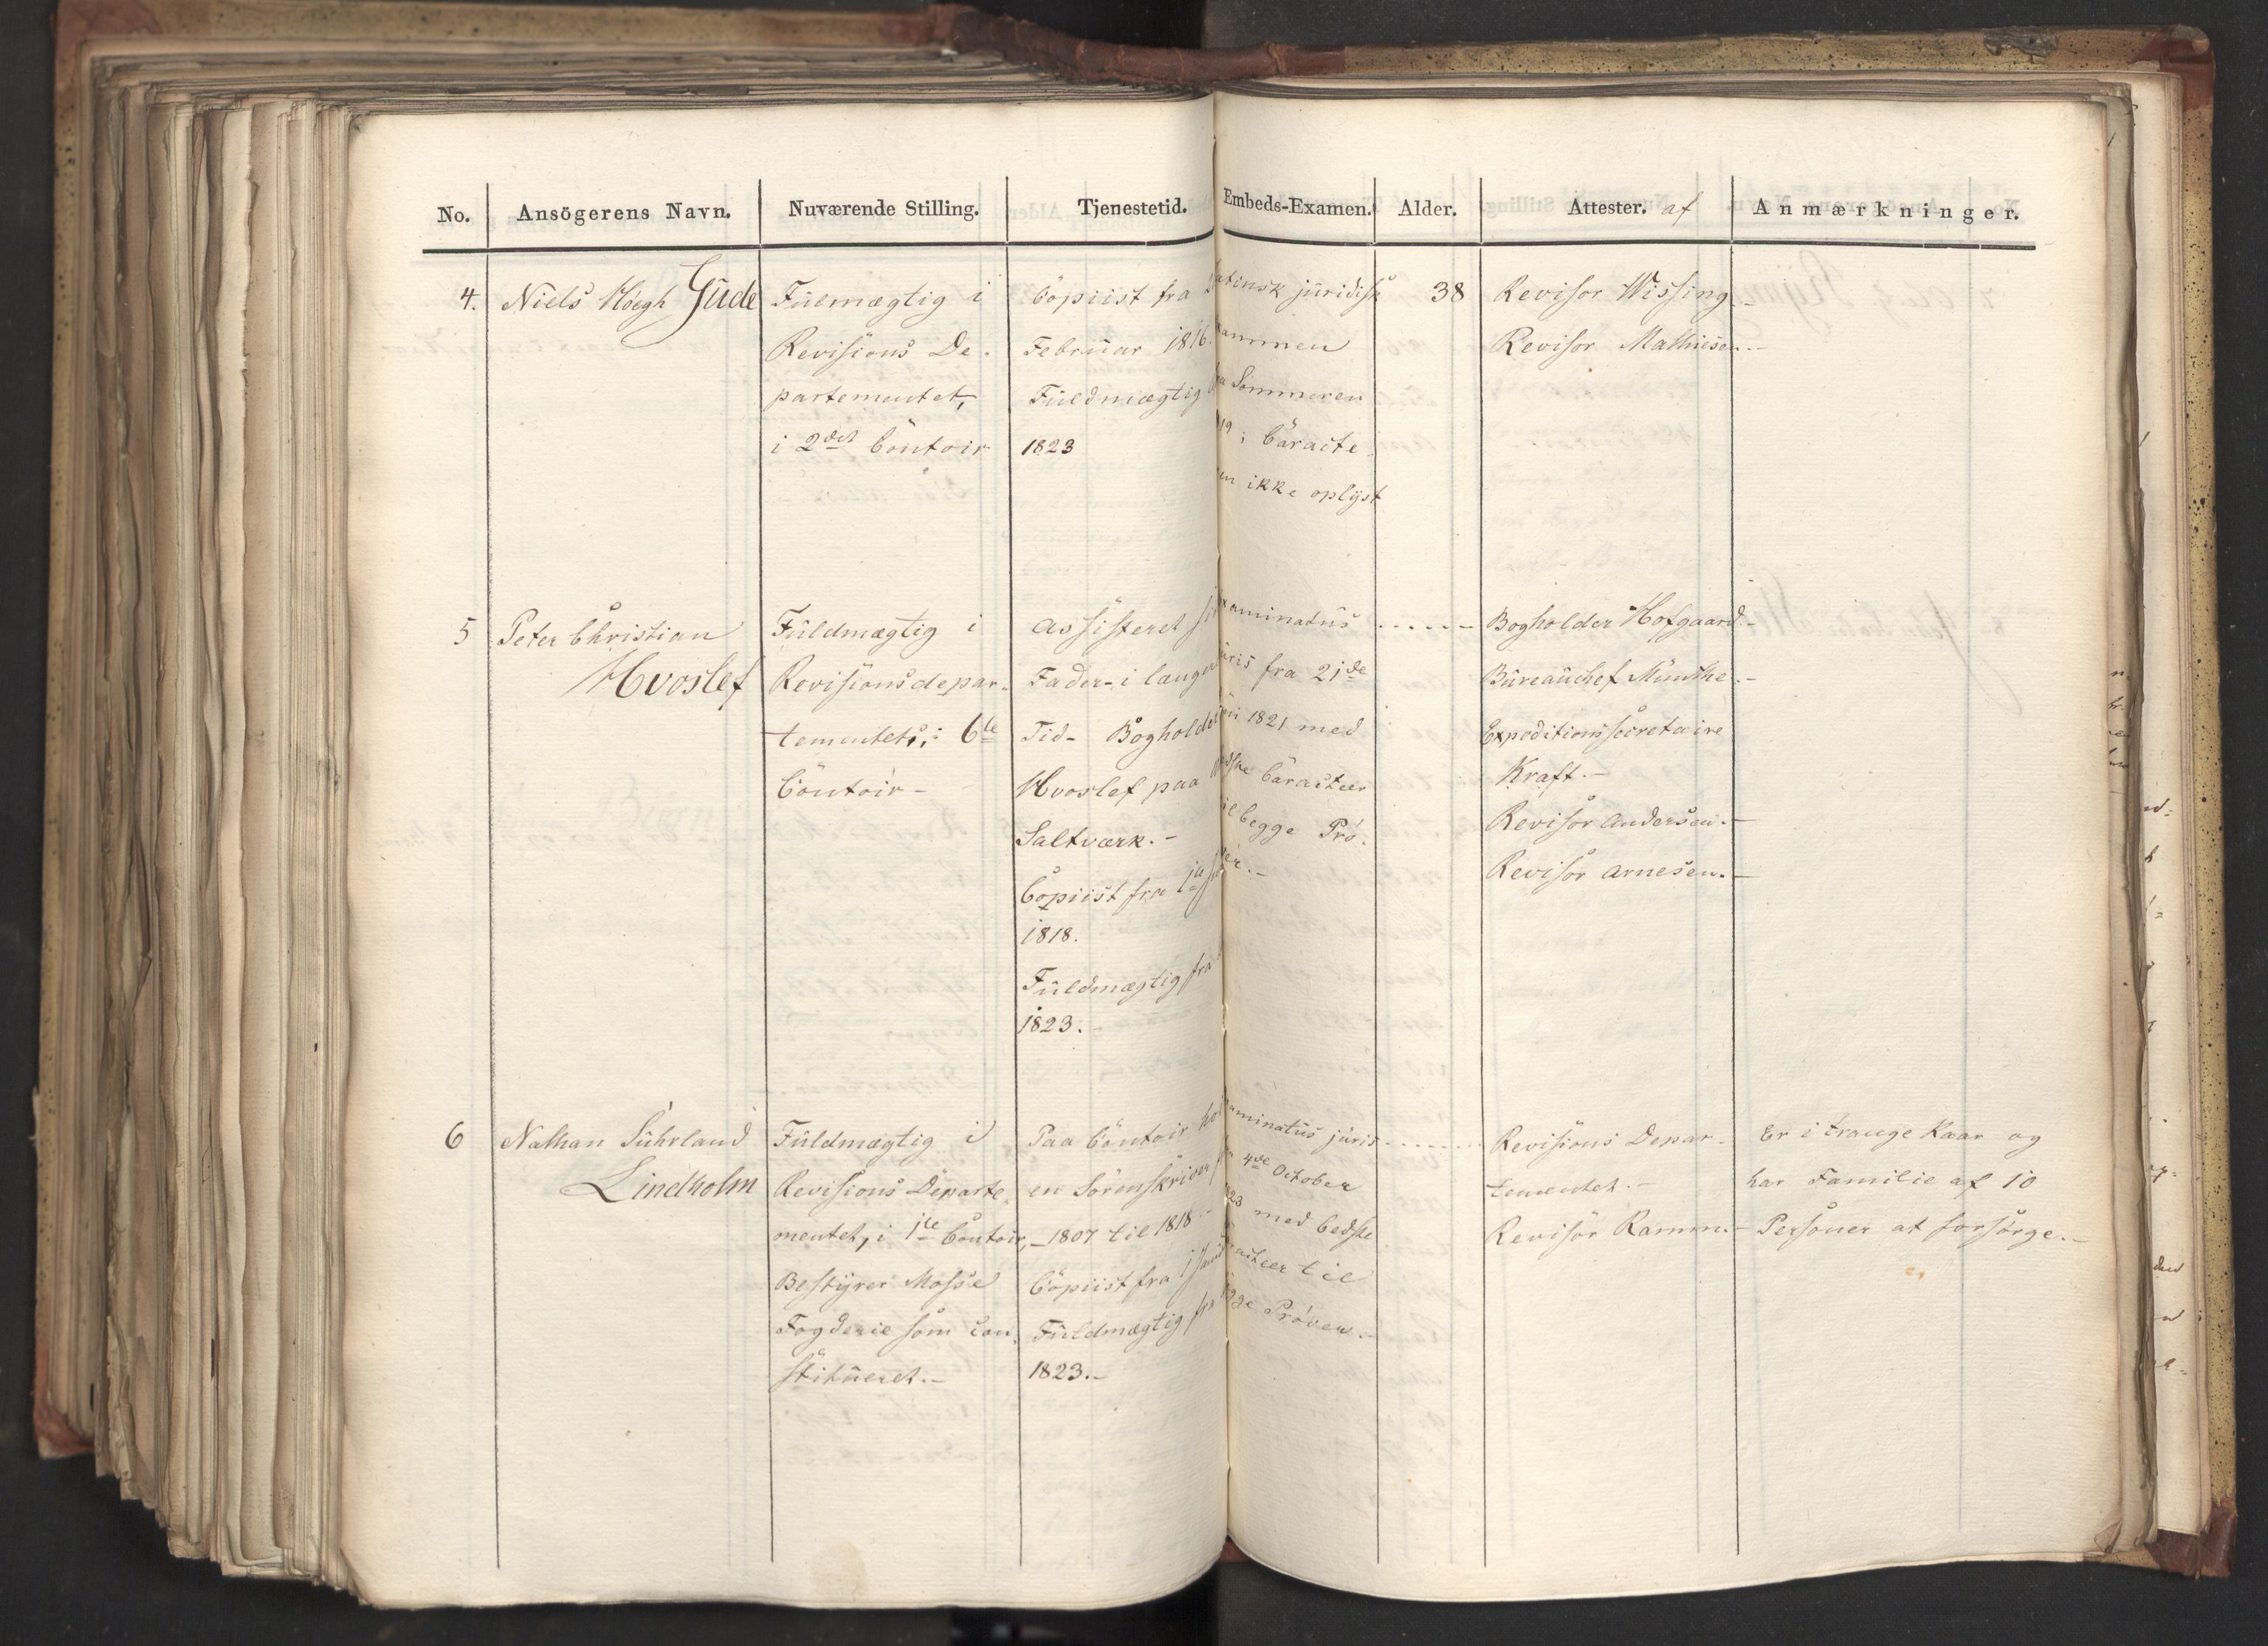 No. Ansögerens Navn. Nuværende Stilling. Tjenestetid. Embeds-Examen. Alder. Attester. af Anmærkninger.
4. Niels Høegh Gude
Fulmægtig i
Revisions De-
partementet,
i 2det Contoir
Copiist fra
Februar 1816.
Fuldmægtig
1823
Latinsk juridisk
Sommeren
19; Caracte
ikke oplyst
38
Revisor Wissing
Revisor Mathiesen.-
5 Peter Christian
Hvoslef
Fuldmægtig i
Revisionsdepar-
tementet, i 6te
Contoir-
Assisteret
Fader i længere
Tid- Bogholder
Hvoslef paa
Saltværk.-
Copiist fra 1te
1818.
Fuldmægtig fra
1823.-
Examinatus
juris fra 21de
1821 med
bedste Caracteer
til begge Prø-
ver.-
Bogholder Hofgaard-
Bureauchef Munthe.-
Expeditionssecretaire
Kraft.-
Revisor Andersen.-
Revisor Arnesen.-
6 Nathan Suhrland
Lindholm
Fuldmægtig i
Revisions Departe
mentet, i 1te Contoir,
Bestyrer Mosse
Fogderie som con-
stitueret.-
Paa Contoir hos
en Sorenskriver
-1807 til 1818-
Copiist fra 1 Januar
Fuldmægtig fra
1823.-
Examinatus juris
4de October
1823 med bedste
Caracteer til
begge Prøver.-
Revisions Depar-
tementet.-
Revisor Ramm.-
Er i trange Kaar og
har Familie af 10
Personer at forsørge.-